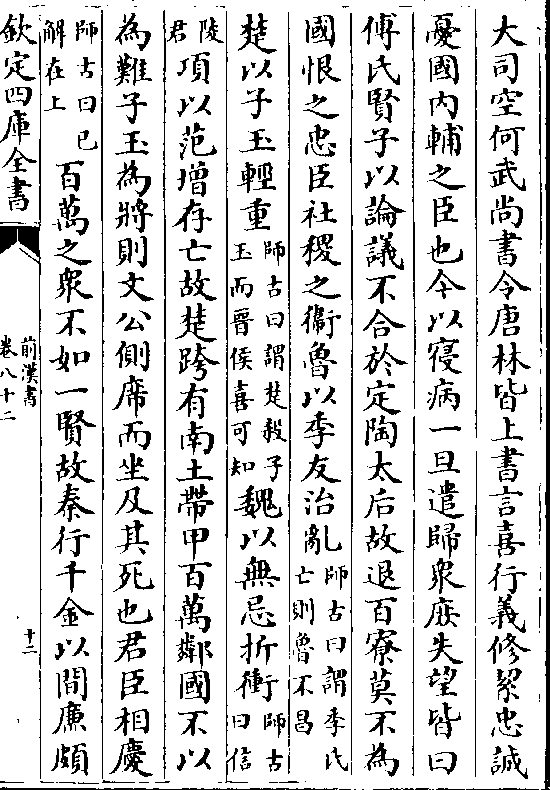 大司空何武尚書令唐林皆上書言喜行義修絜忠誠
憂國内輔之臣也今以寑病一旦遣歸衆庶失望皆曰
傅氏賢子以論議不合於定陶太后故退百寮莫不為
國恨之忠臣社稷之衞魯以季友治亂師古曰謂季氏亡則魯不昌
楚以子玉輕重師古曰謂楚殺子玉而晉侯喜可知魏以無忌折衝師古曰信
陵君項以范增存亡故楚跨有南土帶甲百萬鄰國不以
為難子玉為將則文公側席而坐及其死也君臣相慶
師古曰已解在上百萬之衆不如一賢故秦行千金以間廉頗
欽定四庫全書
前漢書
卷八十二
十二